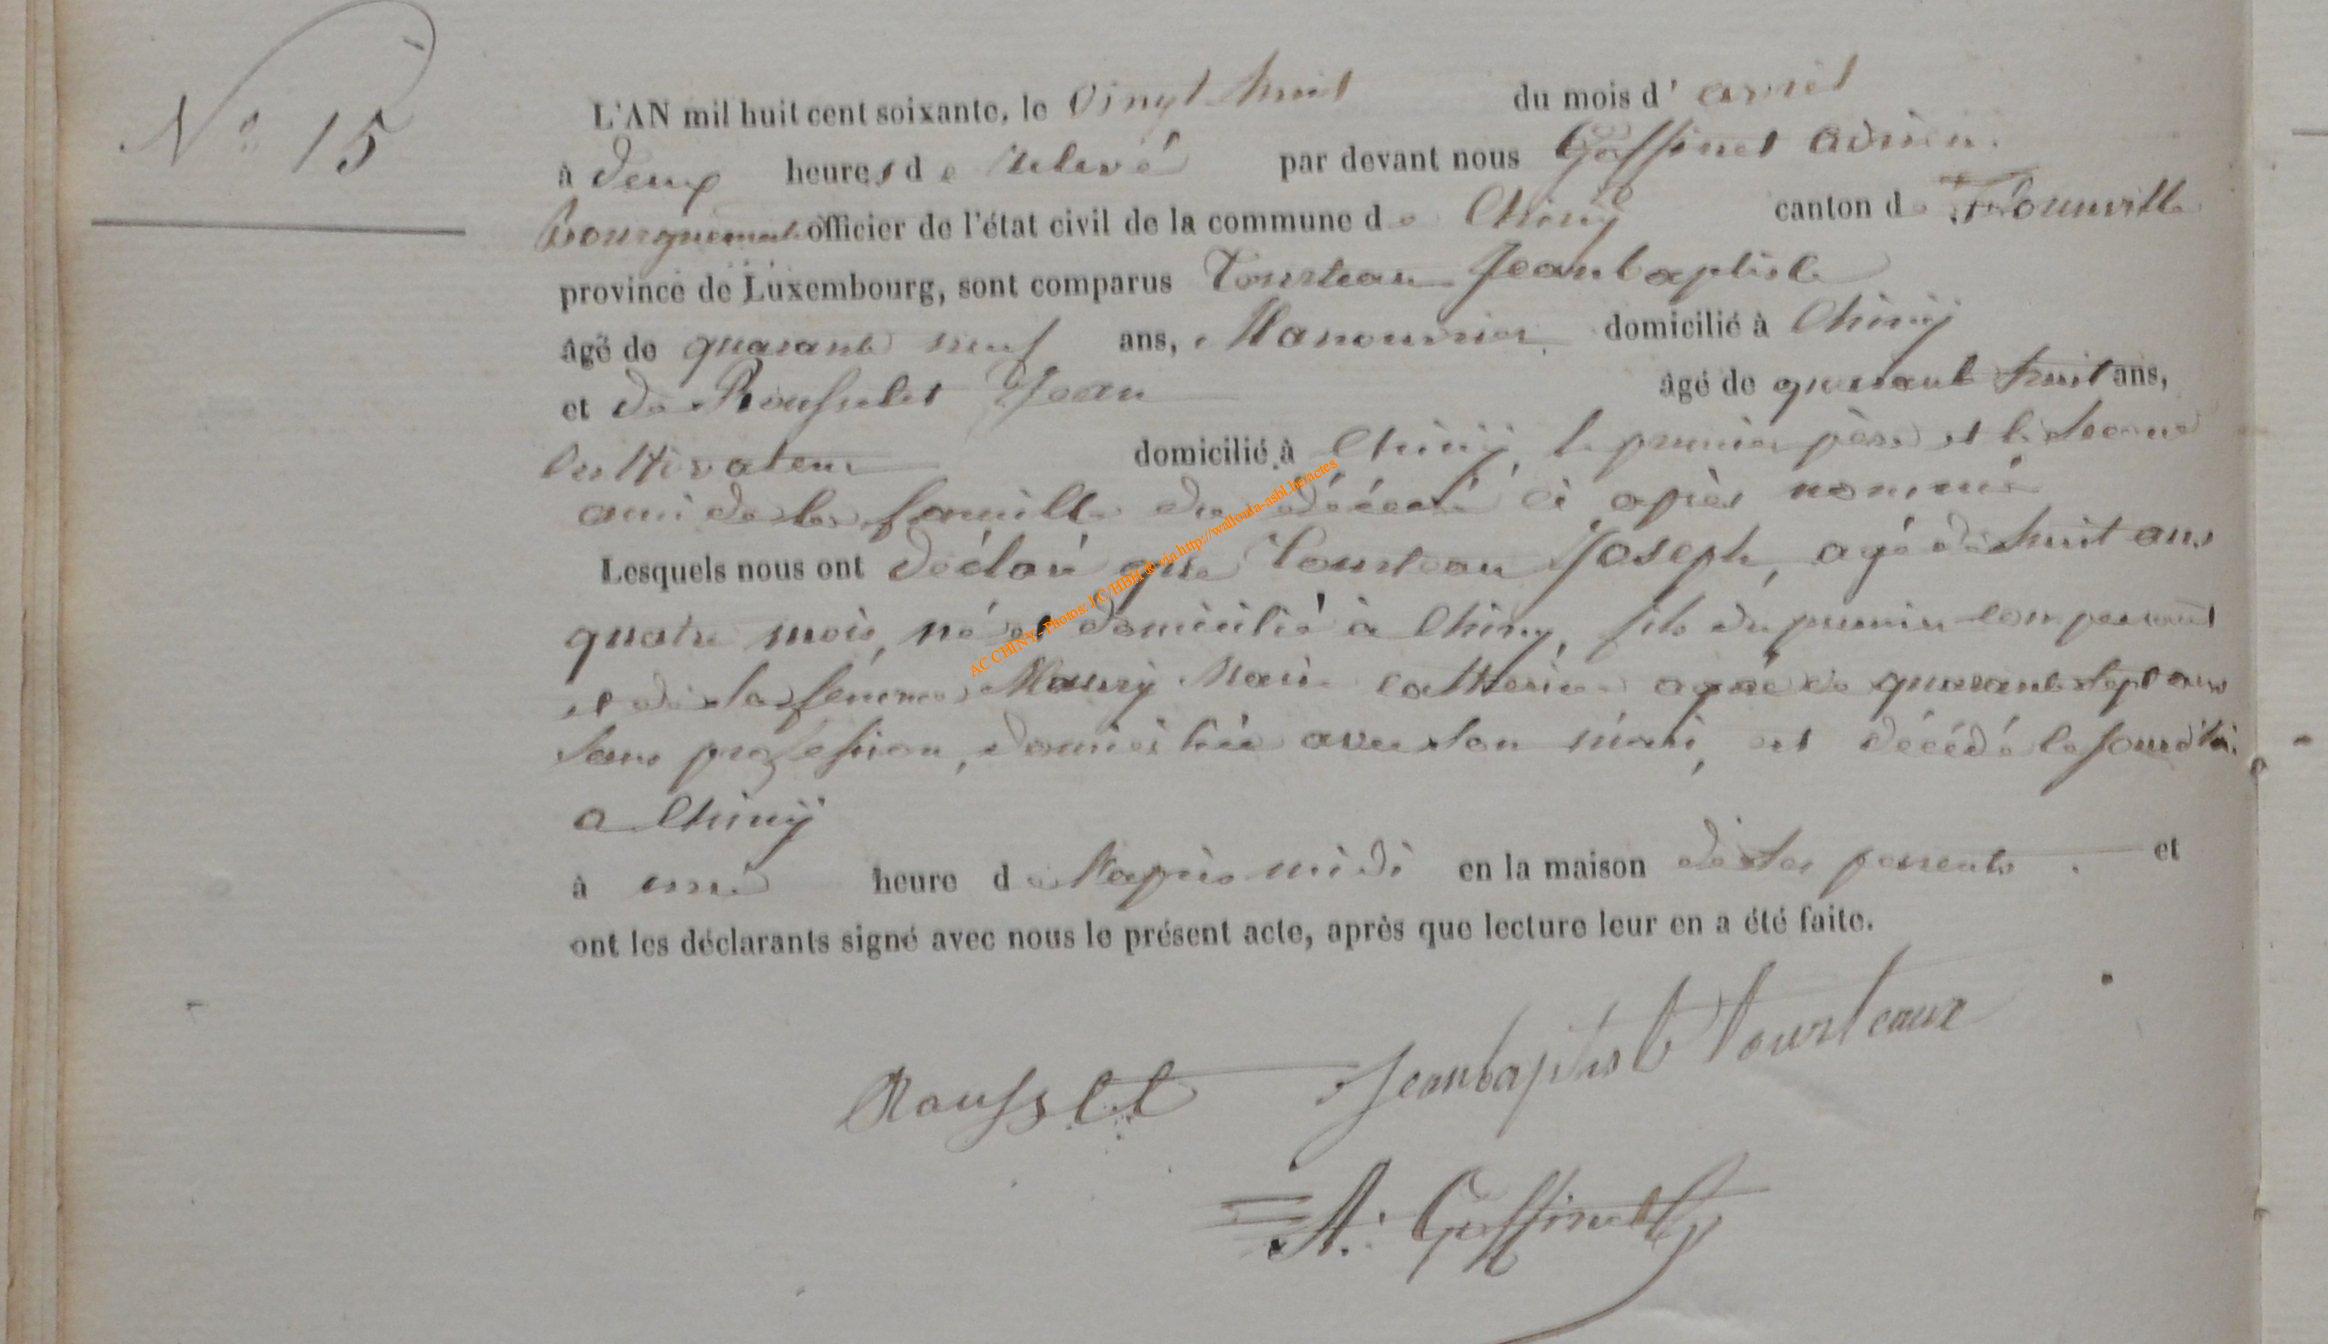 N° 15
L'AN mil huit cent soixante, le vingt huit du mois d' avril
à deux heures de relevé par devant nous Goffinet Adrien
Bourguemestre officier de l'état civil de la commune de Chiny canton de Florenville
province de Luxembourg, sont comparus Tourteau Jeanbaptiste
âgé de quarante neuf ans, Manouvrier domicilié à Chiny
et de Rousselet Jean âgé de quarante huit ans,
Cultivateur domicilié à Chiny, le premier père et le second
ami de la famille du décédé ci après nommé
Lesquels nous ont déclaré que Tourteau Joseph, agé de huit ans
quatre mois, né et domicilié à Chiny, fils du premier comparant
et de la femme Maury Marie Catherine agée de quarante sept ans
sans profession, domiciliée avec son mari, est décédé le jourd'hui
a Chiny
à une heure de l'après midi en la maison de ses parents . et
ont les déclarants signé avec nous le présent acte, après que lecture leur en a été faite.
Jeanbaptiste Tourteaux
A. Goffinet
AC CHINY - Photos: JC HBH & via http://wallonia-asbl.be/actes